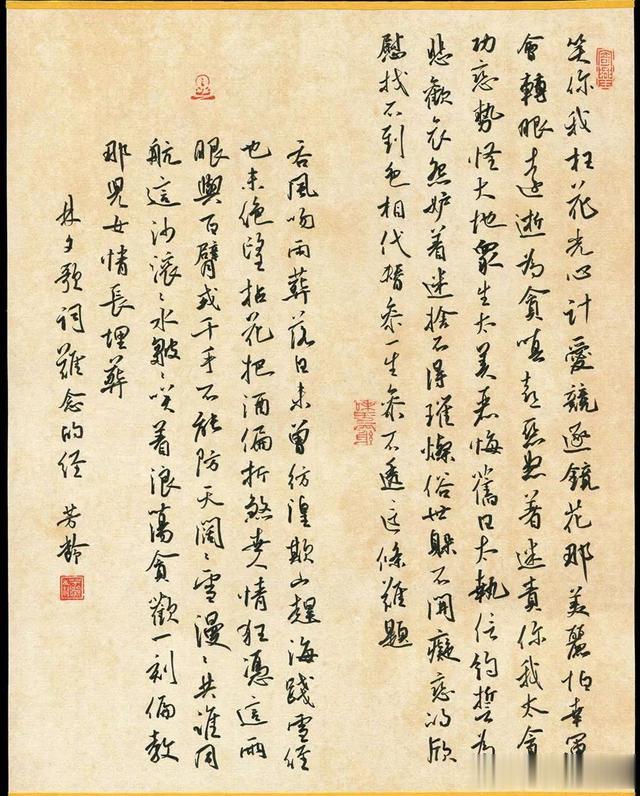 笑你我枉花光心計愛競逐鏡花那美麗怕幸運
會轉眼遠逝為貪嗔喜惡怒着迷責你我太貪
功戀勢怪大地眾生太美惡悔舊日太執信約誓為
悲歡哀怨妒着迷捨不得璀燦俗世躲不開癡戀的欣
慰找不到色相代替參一生參不透這條難題
吞風吻雨葬落日未曾彷徨欺山趕海踐雪徑
也未絕望拈花把酒偏折煞世人情狂憑這兩
眼與百臂或千手不能防天闊々雪漫々共誰同
航這沙滾々水皺々笑着浪蕩貪歡一刻偏教
那兒女情長埋葬
林夕歌詞難念的經 芳齡